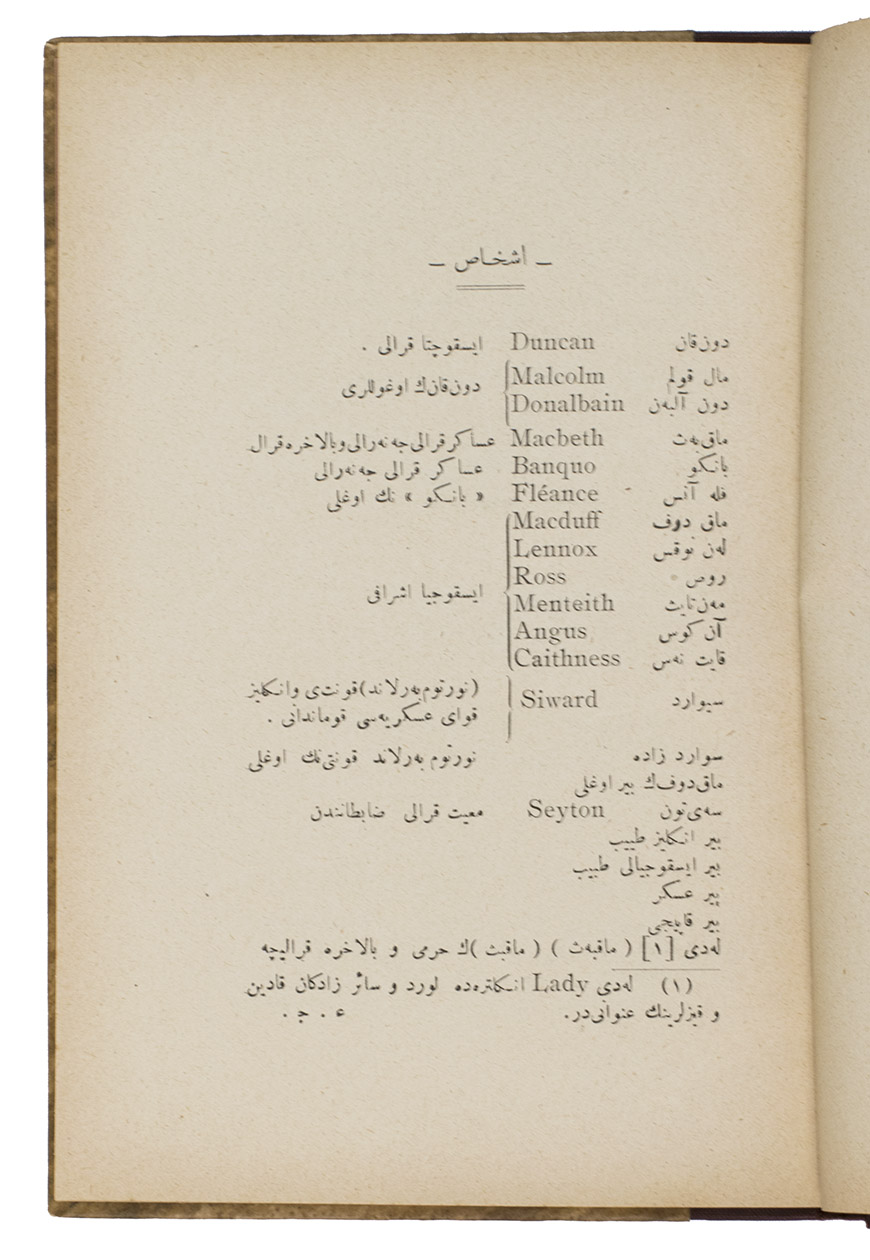 ـ اشخاص ـ
دون‌قان Duncan ایسقوچتا قرالی .
مال قولم Malcolm
دون‌قانك اوغوللری
دون آلبه‌ن Donalbain
ماق‌به‌ث Macbeth عساکر قرالی جه‌نه‌رالی وبالاخره قرال
بانکو Banquo عساکر قرالی جه‌نه‌رالی
فله آنس Fléance « بانکو » نك اوغلی
ماق دوف Macduff
له‌ن نوقس Lennox
روص Ross
ایسقوجیا اشرافی
مه‌ن‌تایث Menteith
آن کوس Angus
قایت نه‌س Caithness
(نورتوم‌به‌رلاند) قونتی وانکلیز
سیوارد Siward
قوای عسکریه‌سی قوماندانی .
سوارد زاده نورتوم به‌رلاند قونتی‌نك اوغلی
ماق‌دوفك بیر اوغلی
سه‌ی‌تون Seyton معیت قرالی ضابطانندن
بیر انکلیز طبیب
بیر ایسقوجیالی طبیب
بیر عسکر
بیر قاپیجی
له‌دی [١] ( ماقبه‌ث ) ( ماقبث )ك حرمی و بالاخره قرالیچه
(١) له‌دی Lady انکلتره‌ده لورد و سائر زادکان قادین
و قیزلرینك عنوانی‌در. ع . ج .